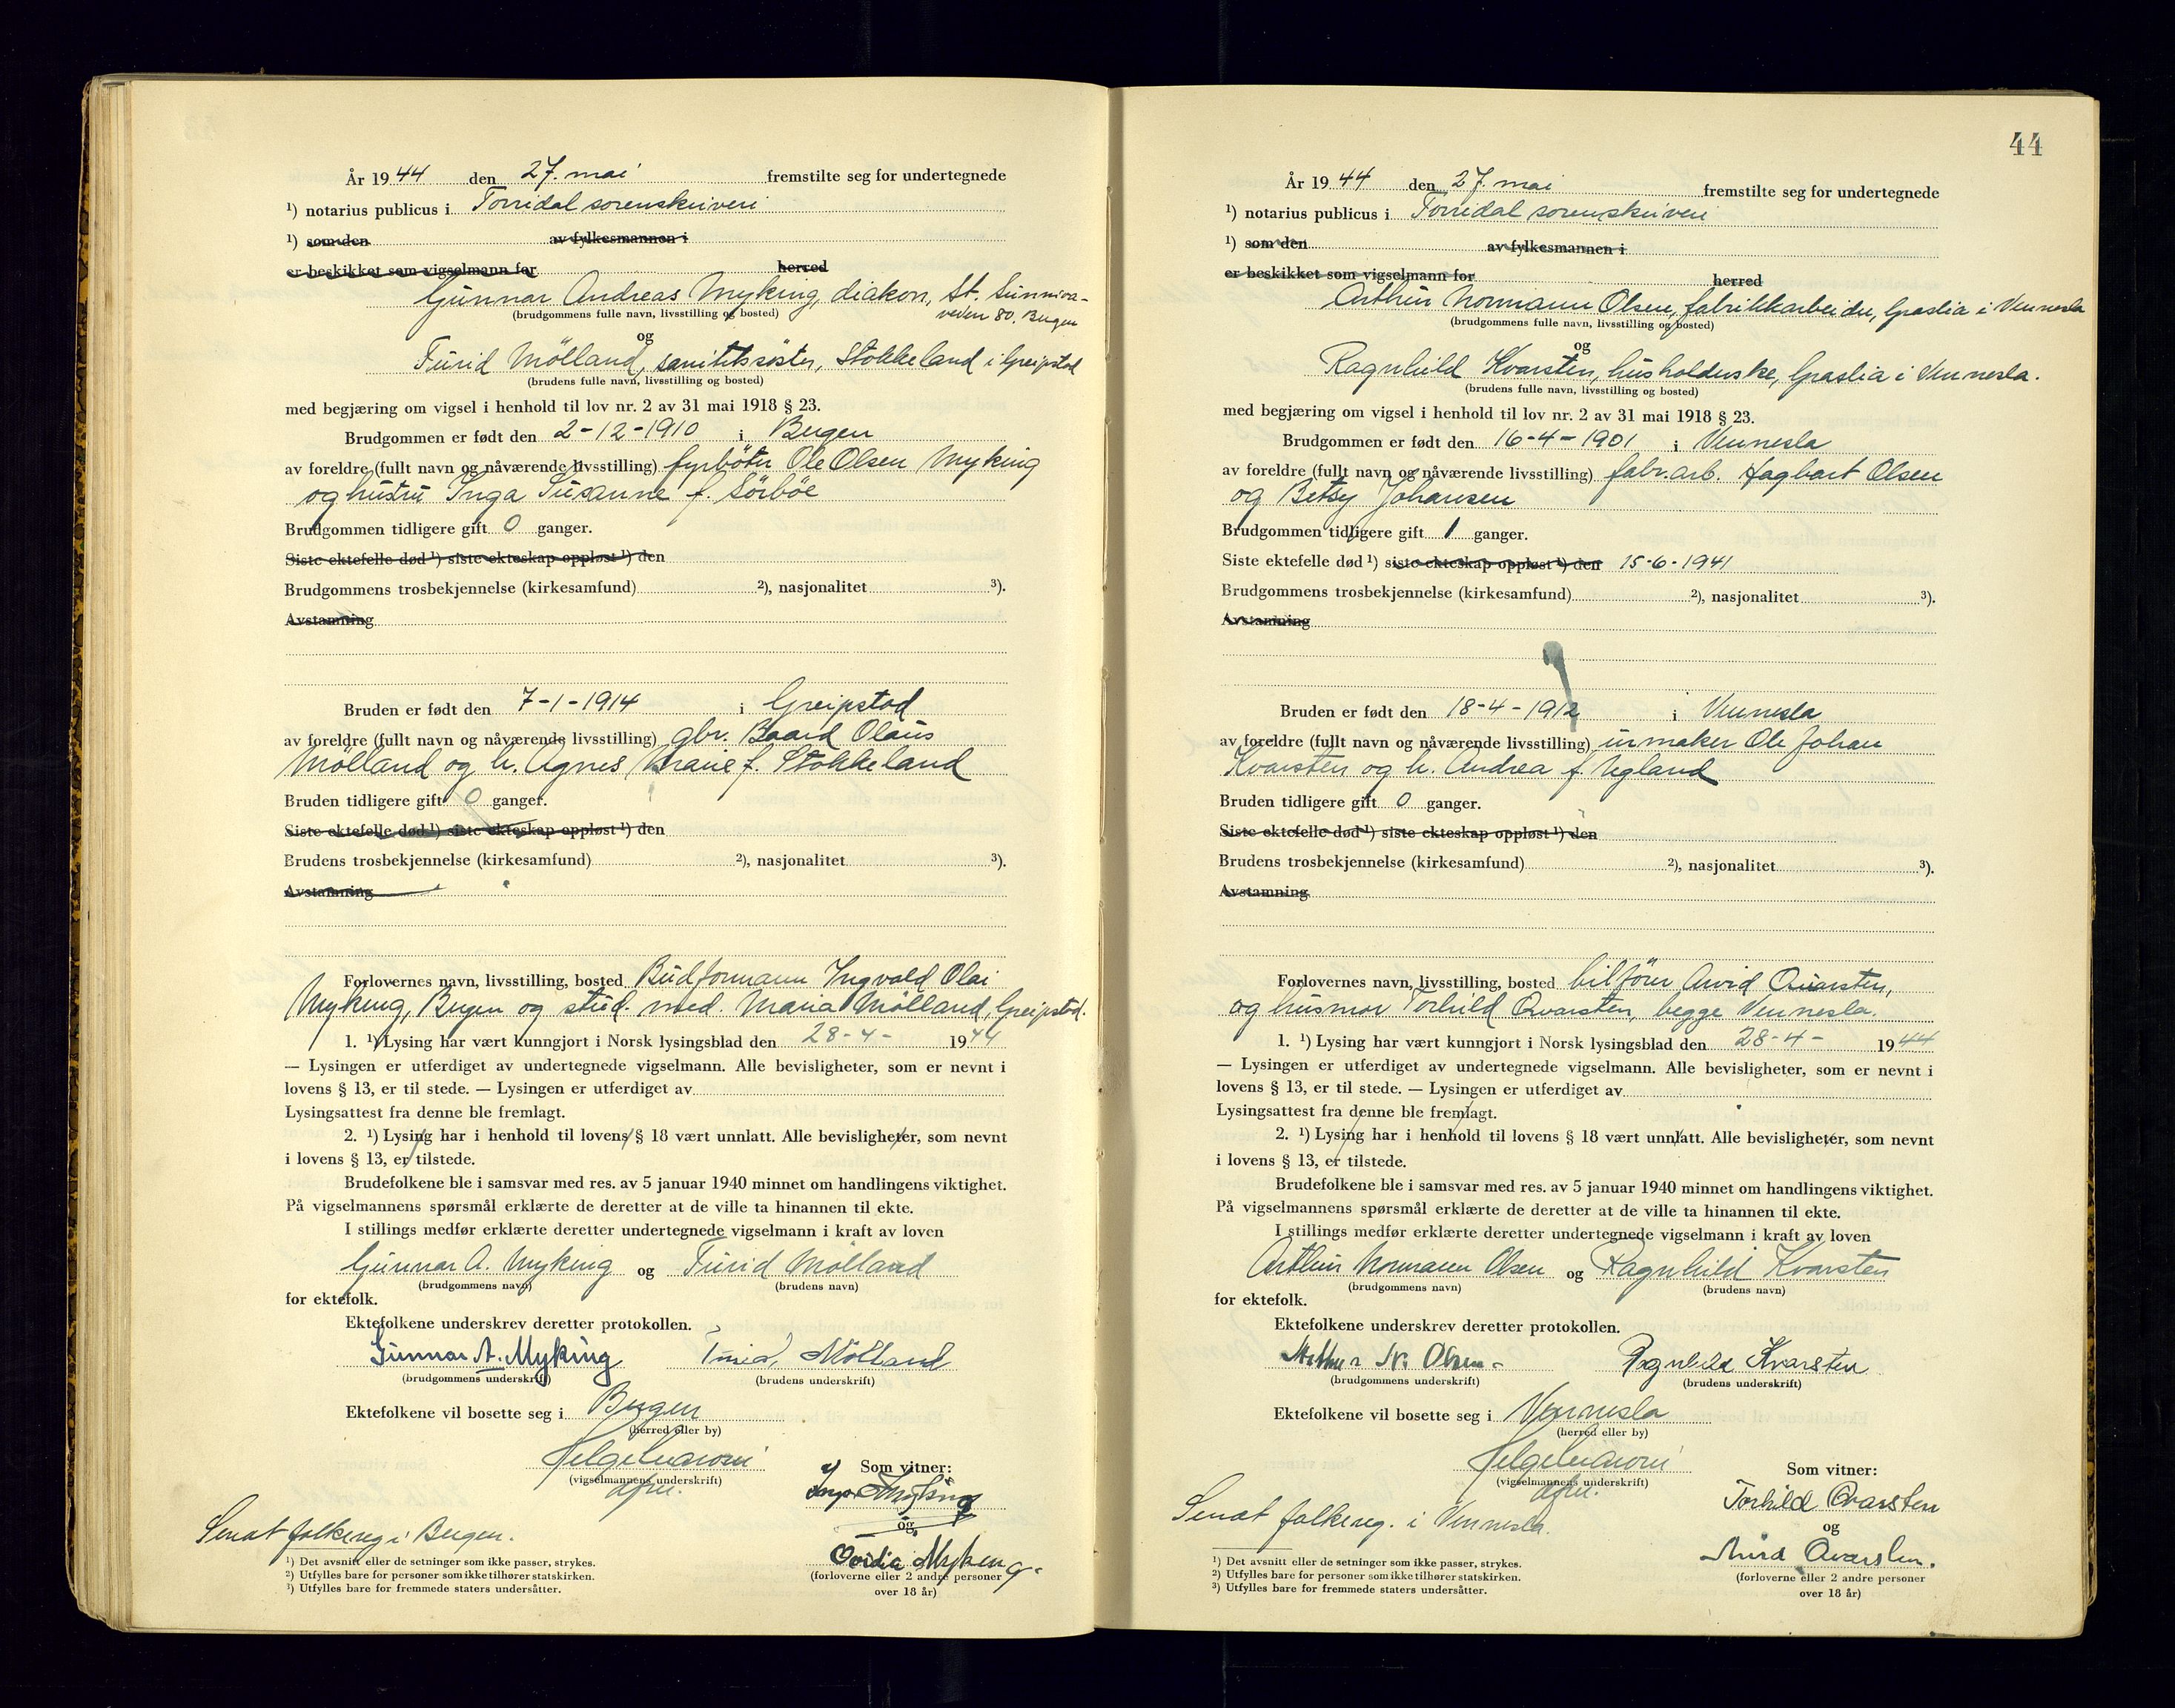 År 1944 den 27. mai fremstilte seg for undertegnede
¹) notarius publicus i Torridal sorenskriveri
¹) som den av fylkesmannen i
er beskikket som vigselmann for herred
Gunnar Andreas Myking, diakon, St. Sunniva-
veien 80, Bergen
(brudgommens fulle navn, livsstilling og bosted)
og
Turid Mölland, sanitetssöster, Stokkeland i Greipstad
(brudens fulle navn, livsstilling og bosted)
med begjæring om vigsel i henhold til lov nr. 2 av 31 mai 1918 § 23.
Brudgommen er født den 2-12-1910 i Bergen
av foreldre (fullt navn og nåværende livsstilling) fyrböter Ole Olsen Myking
og hustru Inga Susanne f. Sörböe
Brudgommen tidligere gift 0 ganger.
Siste ektefelle død ¹) siste ekteskap oppløst ¹) den
Brudgommens trosbekjennelse (kirkesamfund) ²), nasjonalitet ³).
Avstamning
Bruden er født den 7-1-1914 i Greipstad
av foreldre (fullt navn og nåværende livsstilling) gbr. Baard Olaus
Mölland og h. Agnes Marie f. Stokkeland
Bruden tidligere gift 0 ganger.
Siste ektefelle død ¹) siste ekteskap oppløst ¹) den
Brudens trosbekjennelse (kirkesamfund) ²), nasjonalitet ³).
Avstamning
Forlovernes navn, livsstilling, bosted Budformann Ingvald Olai
Myking, Bergen og stud. med. Maria Mölland, Greipstad.
1. ¹) Lysing har vært kunngjort i Norsk lysingsblad den 28-4- 1944
— Lysingen er utferdiget av undertegnede vigselmann. Alle bevisligheter, som er nevnt i
lovens § 13, er til stede. — Lysingen er utferdiget av
Lysingsattest fra denne ble fremlagt.
2. ¹) Lysing har i henhold til lovens § 18 vært unnlatt. Alle bevisligheter, som nevnt
i lovens § 13, er tilstede.
Brudefolkene ble i samsvar med res. av 5 januar 1940 minnet om handlingens viktighet.
På vigselmannens spørsmål erklærte de deretter at de ville ta hinannen til ekte.
I stillings medfør erklærte deretter undertegnede vigselmann i kraft av loven
Gunnar A. Myking og Turid Mölland
(brudgommens navn) (brudens navn)
for ektefolk.
Ektefolkene underskrev deretter protokollen.
Gunnar A. Myking Turid Mölland
(brudgommens underskrift) (brudens underskrift)
Ektefolkene vil bosette seg i Bergen
(herred eller by)
(vigselmannens underskrift)
Som vitner:
Myking
og
Ovidia Myking
(forloverne eller 2 andre personer
over 18 år)
Sendt folkereg i Bergen.
¹) Det avsnitt eller de setninger som ikke passer, strykes.
²) Utfylles bare for personer som ikke tilhører statskirken.
³) Utfylles bare for fremmede staters undersåtter.
44
År 1944 den 27. mai fremstilte seg for undertegnede
¹) notarius publicus i Torridal sorenskriveri
¹) som den av fylkesmannen i
er beskikket som vigselmann for herred
Arthur Normann Olsen, fabrikkarbeider, Graslia i Vennesla
(brudgommens fulle navn, livsstilling og bosted)
og
Ragnhild Kvarsten, husholderske, Graslia i Vennesla.
(brudens fulle navn, livsstilling og bosted)
med begjæring om vigsel i henhold til lov nr. 2 av 31 mai 1918 § 23.
Brudgommen er født den 16-4-1901 i Vennesla
av foreldre (fullt navn og nåværende livsstilling) fabr.arb. Hagbart Olsen
og Betsy Johansen
Brudgommen tidligere gift 1 ganger.
Siste ektefelle død ¹) siste ekteskap oppløst ¹) den 15-6-1941
Brudgommens trosbekjennelse (kirkesamfund) ²), nasjonalitet ³).
Avstamning
Bruden er født den 18-4-1912 i Vennesla
av foreldre (fullt navn og nåværende livsstilling) urmaker Ole Johan
Kvarsten og h. Andrea f. Ugland
Bruden tidligere gift 0 ganger.
Siste ektefelle død ¹) siste ekteskap oppløst ¹) den
Brudens trosbekjennelse (kirkesamfund) ²), nasjonalitet ³).
Avstamning
Forlovernes navn, livsstilling, bosted bilförer Arvid Qvarsten,
og husmor Torhild Qvarsten, begge Vennesla.
1. ¹) Lysing har vært kunngjort i Norsk lysingsblad den 28-4- 1944
— Lysingen er utferdiget av undertegnede vigselmann. Alle bevisligheter, som er nevnt i
lovens § 13, er til stede. — Lysingen er utferdiget av
Lysingsattest fra denne ble fremlagt.
2. ¹) Lysing har i henhold til lovens § 18 vært unnlatt. Alle bevisligheter, som nevnt
i lovens § 13, er tilstede.
Brudefolkene ble i samsvar med res. av 5 januar 1940 minnet om handlingens viktighet.
På vigselmannens spørsmål erklærte de deretter at de ville ta hinannen til ekte.
I stillings medfør erklærte deretter undertegnede vigselmann i kraft av loven
Arthur Normann Olsen og Ragnhild Kvarsten
(brudgommens navn) (brudens navn)
for ektefolk.
Ektefolkene underskrev deretter protokollen.
Arthur N. Olsen- Ragnhild Kvarsten
(brudgommens underskrift) (brudens underskrift)
Ektefolkene vil bosette seg i Vennesla
(herred eller by)
(vigselmannens underskrift)
Som vitner:
Torhild Qvarsten
og
Arvid Qvarsten.
(forloverne eller 2 andre personer
over 18 år)
Sendt folkereg. i Vennesla.
¹) Det avsnitt eller de setninger som ikke passer, strykes.
²) Utfylles bare for personer som ikke tilhører statskirken.
³) Utfylles bare for fremmede staters undersåtter.